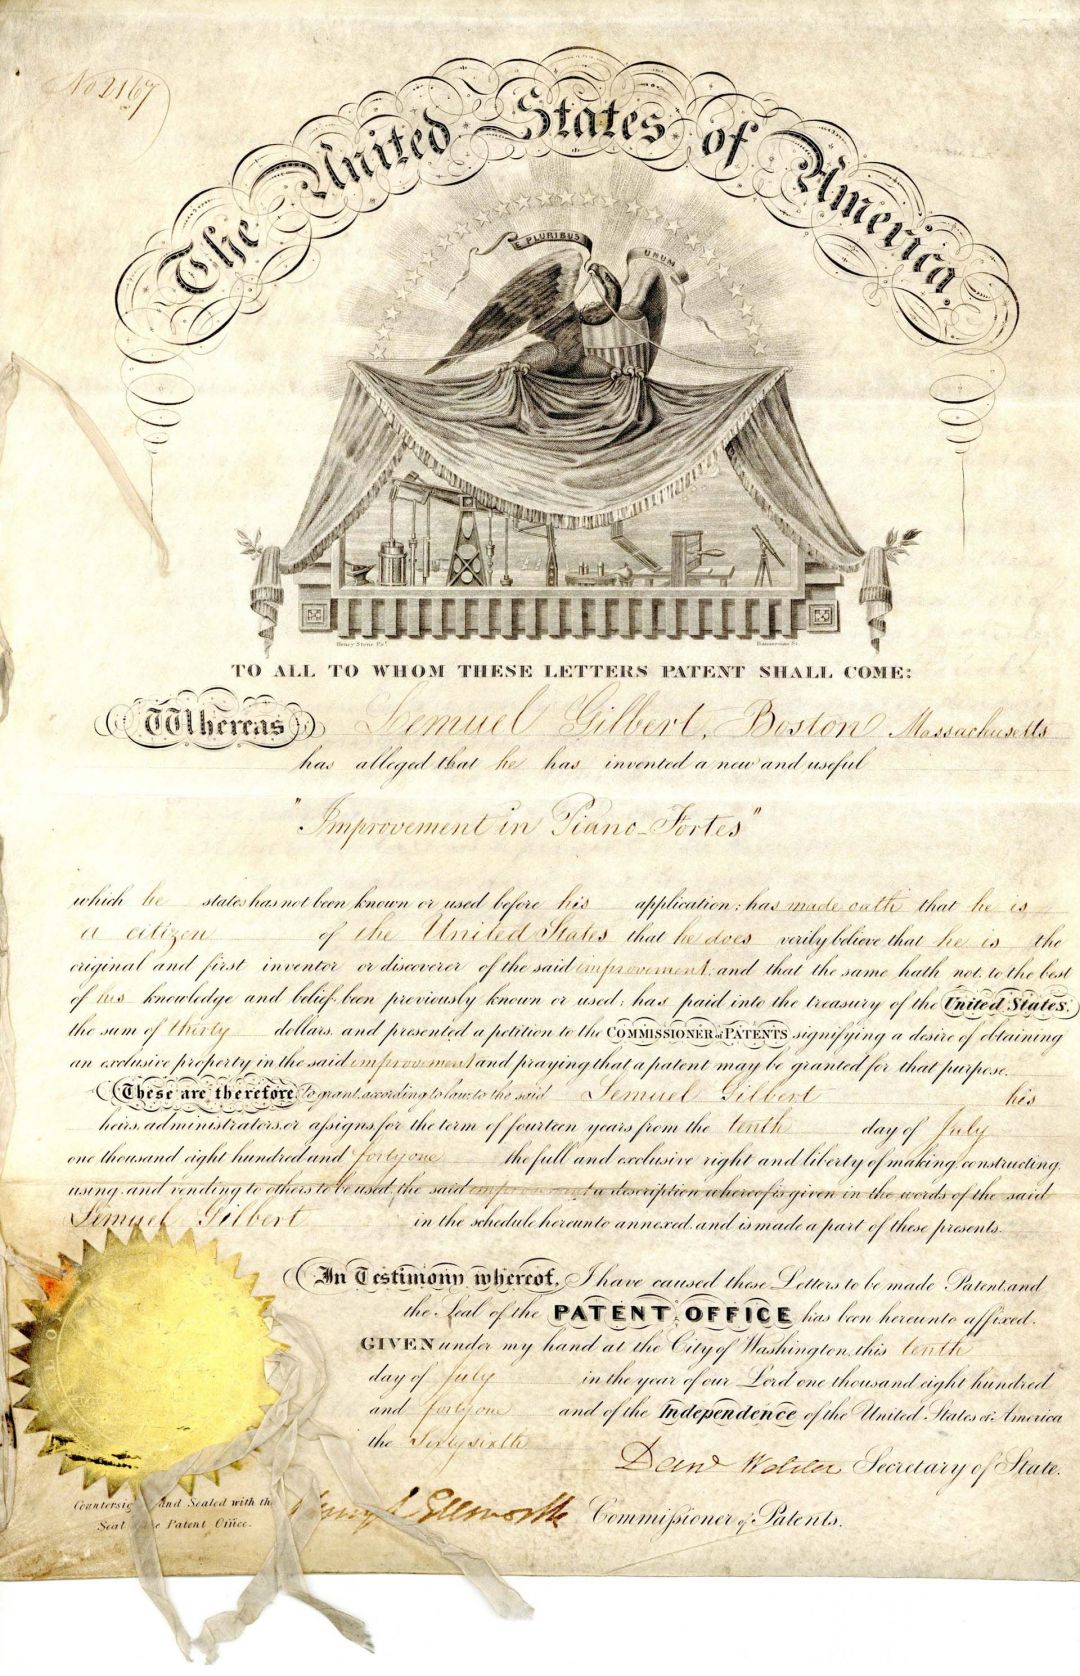 No 2167
The United States of America.
E PLURIBUS UNUM
Henry Stone Del.
TO ALL TO WHOM THESE LETTERS PATENT SHALL COME:
Whereas Lemuel Gilbert, Boston Massachusetts
has alleged that he has invented a new and useful
"Improvement in Piano-Fortes"
which he states has not been known or used before his application; has made oath that he is
a citizen of the United States that he does verily believe that he is the
original and first inventor or discoverer of the said improvement, and that the same hath not, to the best
of his knowledge and belief, been previously known or used; has paid into the treasury of the United States,
the sum of thirty dollars, and presented a petition to the COMMISSIONER of PATENTS signifying a desire of obtaining
an exclusive property in the said improvement and praying that a patent may be granted for that purpose.
These are therefore to grant, according to law, to the said Lemuel Gilbert his
heirs, administrators or assigns, for the term of fourteen years from the tenth day of July
one thousand eight hundred and forty one the full and exclusive right and liberty of making, constructing,
using, and vending to others to be used, the said improvement a description whereof is given in the words of the said
Lemuel Gilbert in the schedule hereunto annexed, and is made a part of these presents.
In Testimony whereof, I have caused these Letters to be made Patent, and
the Seal of the PATENT OFFICE has been hereunto affixed.
GIVEN under my hand at the City of Washington, this tenth
day of July in the year of our Lord one thousand eight hundred
and forty one and of the Independence of the United States of America
the Sixty sixth
Danl Webster Secretary of State.
Countersigned and Sealed with the
Seal of the Patent Office.
Henry L Ellsworth Commissioner of Patents.